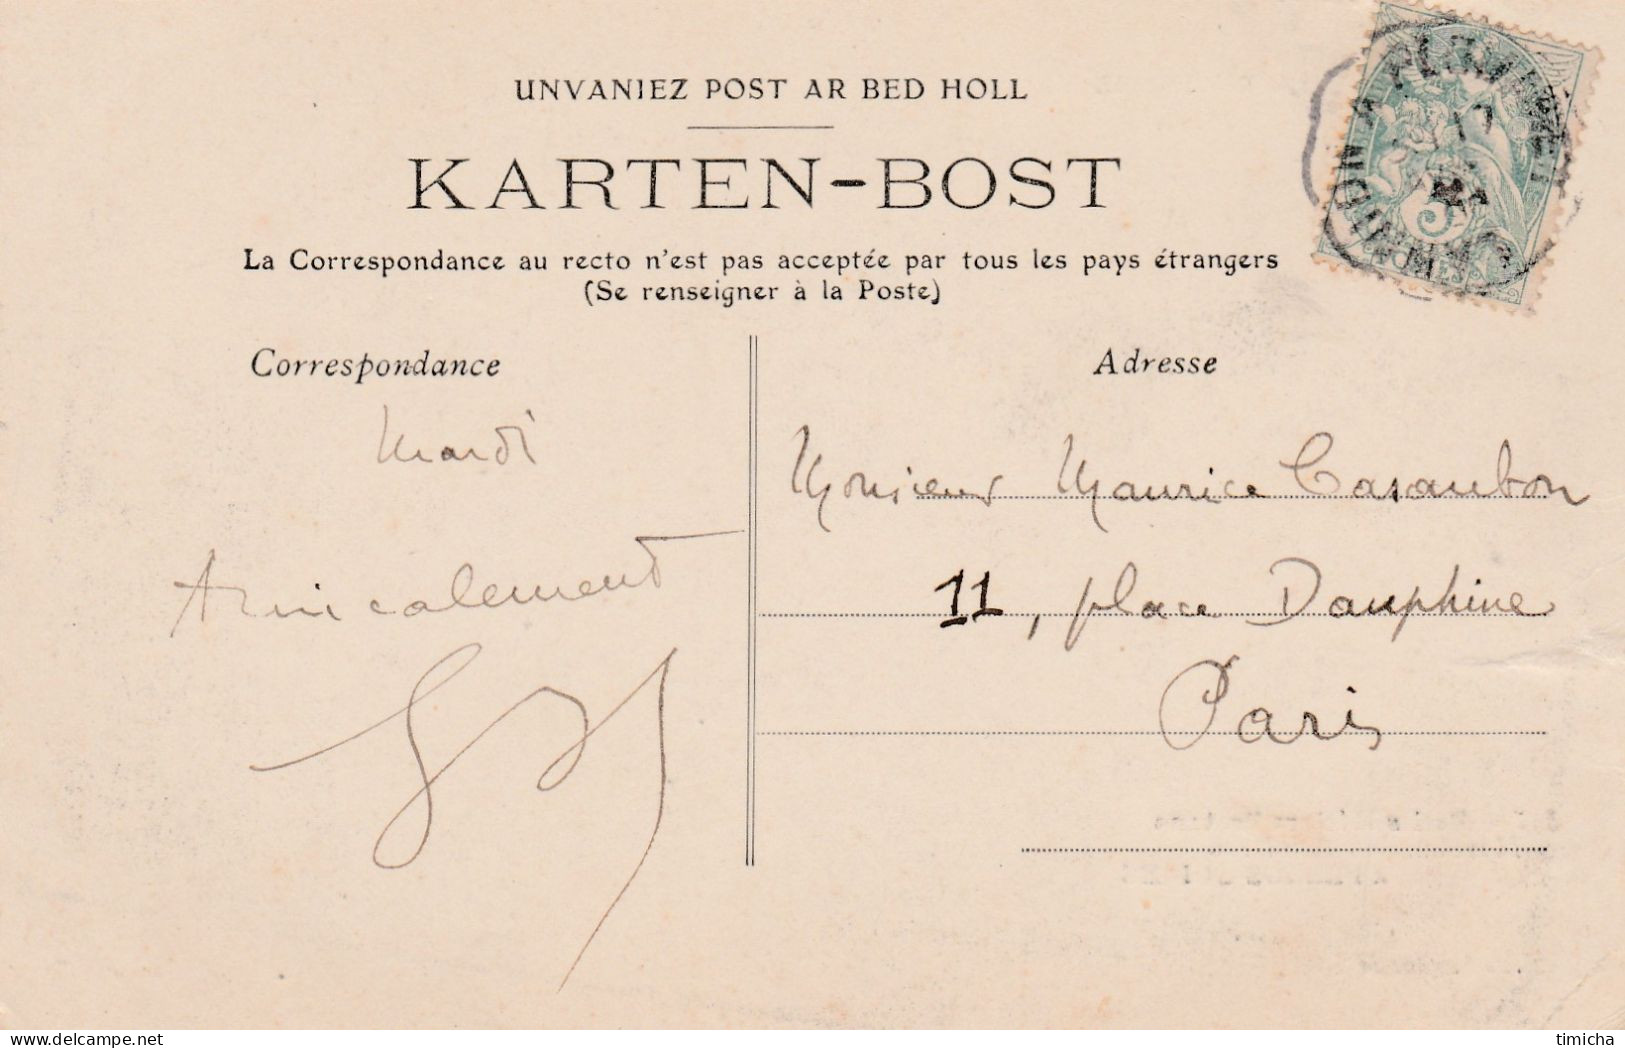 UNVANIEZ POST AR BED HOLL
KARTEN-BOST
La Correspondance au recto n'est pas acceptée par tous les pays étrangers
(Se renseigner à la Poste)
Correspondance
Adresse
Mardi
Amicalement
Monsieur Maurice Casaubon
11, place Dauphine
Paris
5
delcampe.net
timicha